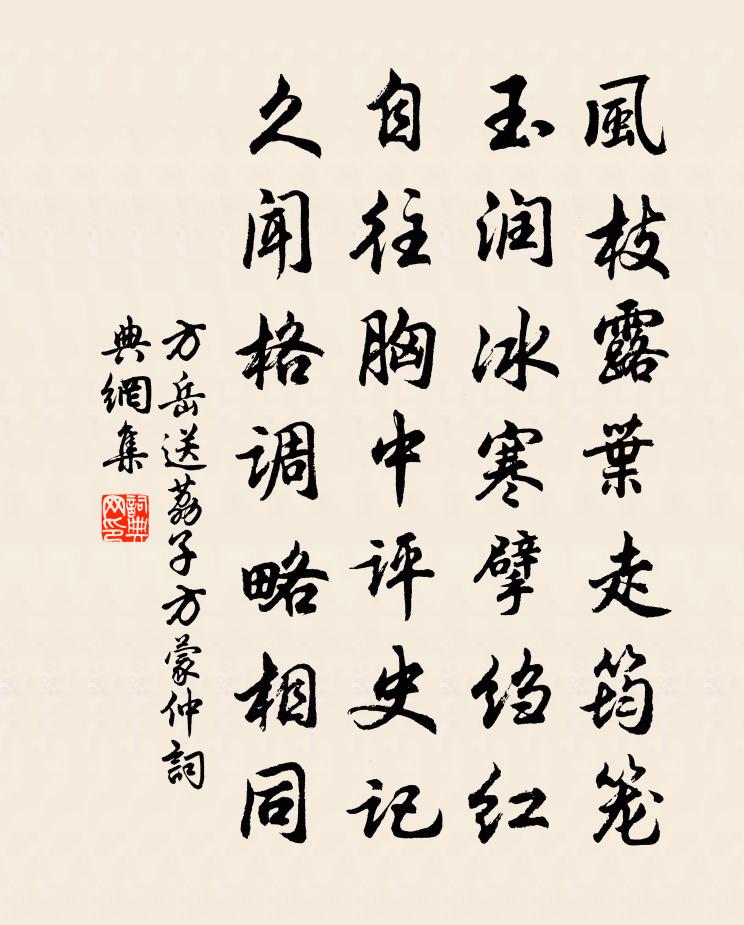 風枝露葉走筠笼
玉润冰寒擘绉红
自往胸中评史记
久闻格调略相同
方岳送荔子方蒙仲詞
典網集
詞典網印